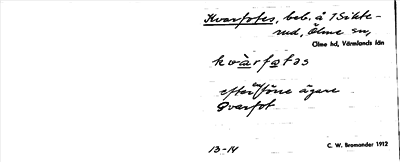 Kvarfotes, beb. å 1 Sikte-
rud, Ölme sn,
Ölme hd, Värmlands län
kvàrfotəs
efter en förre ägare
Qvarfot
13-14
C. W. Bromander 1912